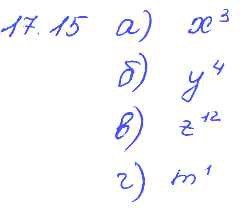 17.15 а) x³
б) y⁴
в) z¹²
г) m¹